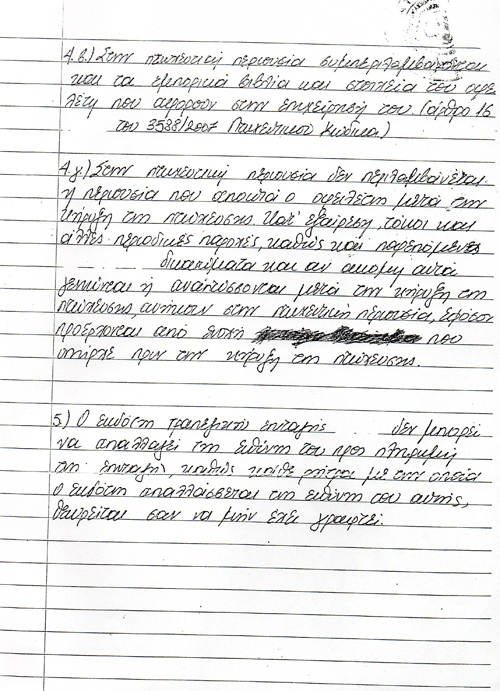 4.β.) Στην πτωχευτική περιουσία συμπεριλαμβάνονται
και τα εμπορικά βιβλία και στοιχεία του οφει
λέτη που αφορούν στην επιχείρησή του. (άρθρο 16
του 3588/2007 Πτωχευτικού Κώδικα)
4.γ.) Στην πτωχευτική περιουσία δεν περιλαμβάνεται
η περιουσία που αποκτά ο οφειλέτης μετά την
κήρυξη της πτώχευσης. Κατ' εξαίρεση, τόκοι και
άλλες περιοδικές παροχές, καθώς και παρεπόμενες
δικαιώματα και αν ακόμη αυτά
γεννώνται ή αναπτύσσονται μετά την κήρυξη της
πτώχευσης, ανήκουν στην πτωχευτική περιουσία, εφόσον
προέρχονται από ενοχή που
υπήρχε πριν την κήρυξη της πτώχευσης.
5) Ο εκδότης τραπεζικής επιταγής δεν μπορεί
να απαλλαγεί της ευθύνη του προς πληρωμή
της επιταγής, καθώς κάθε ρήτρα με την οποία
ο εκδότης απαλλάσσεται της ευθύνη του αυτής,
θεωρείται σαν να μην έχει γραφτεί.